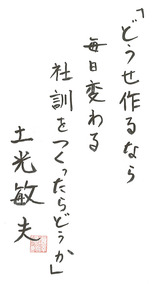 「どうせ作るなら
毎日変わる
社訓をつくったらどうか」
土光敏夫